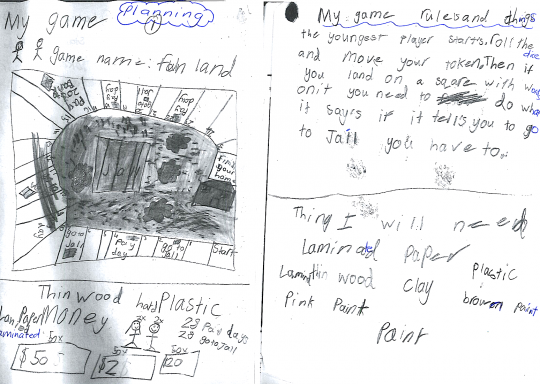 My game
Planning
1
game name: fun land
Pay
day
go to
Jail
Pay
day
Jail
find
your
home
go to
Jail
Pay
day
go to
Jail
Start
Thin wood hard Plastic
Paper Money
laminated
2x 2x
29 Pay days
29 go to Jail
50x
$50
50x
$2
50x
$20
My game rules and things
the youngest player starts. roll the
dice
and move your token. Then if
you land on a sqare with
on it you need to do
it says if it tells you to go
to Jail you have to.
Thing I will need
Laminated paper
Plastic
thin wood clay
browen paint
Pink Paint
Paint